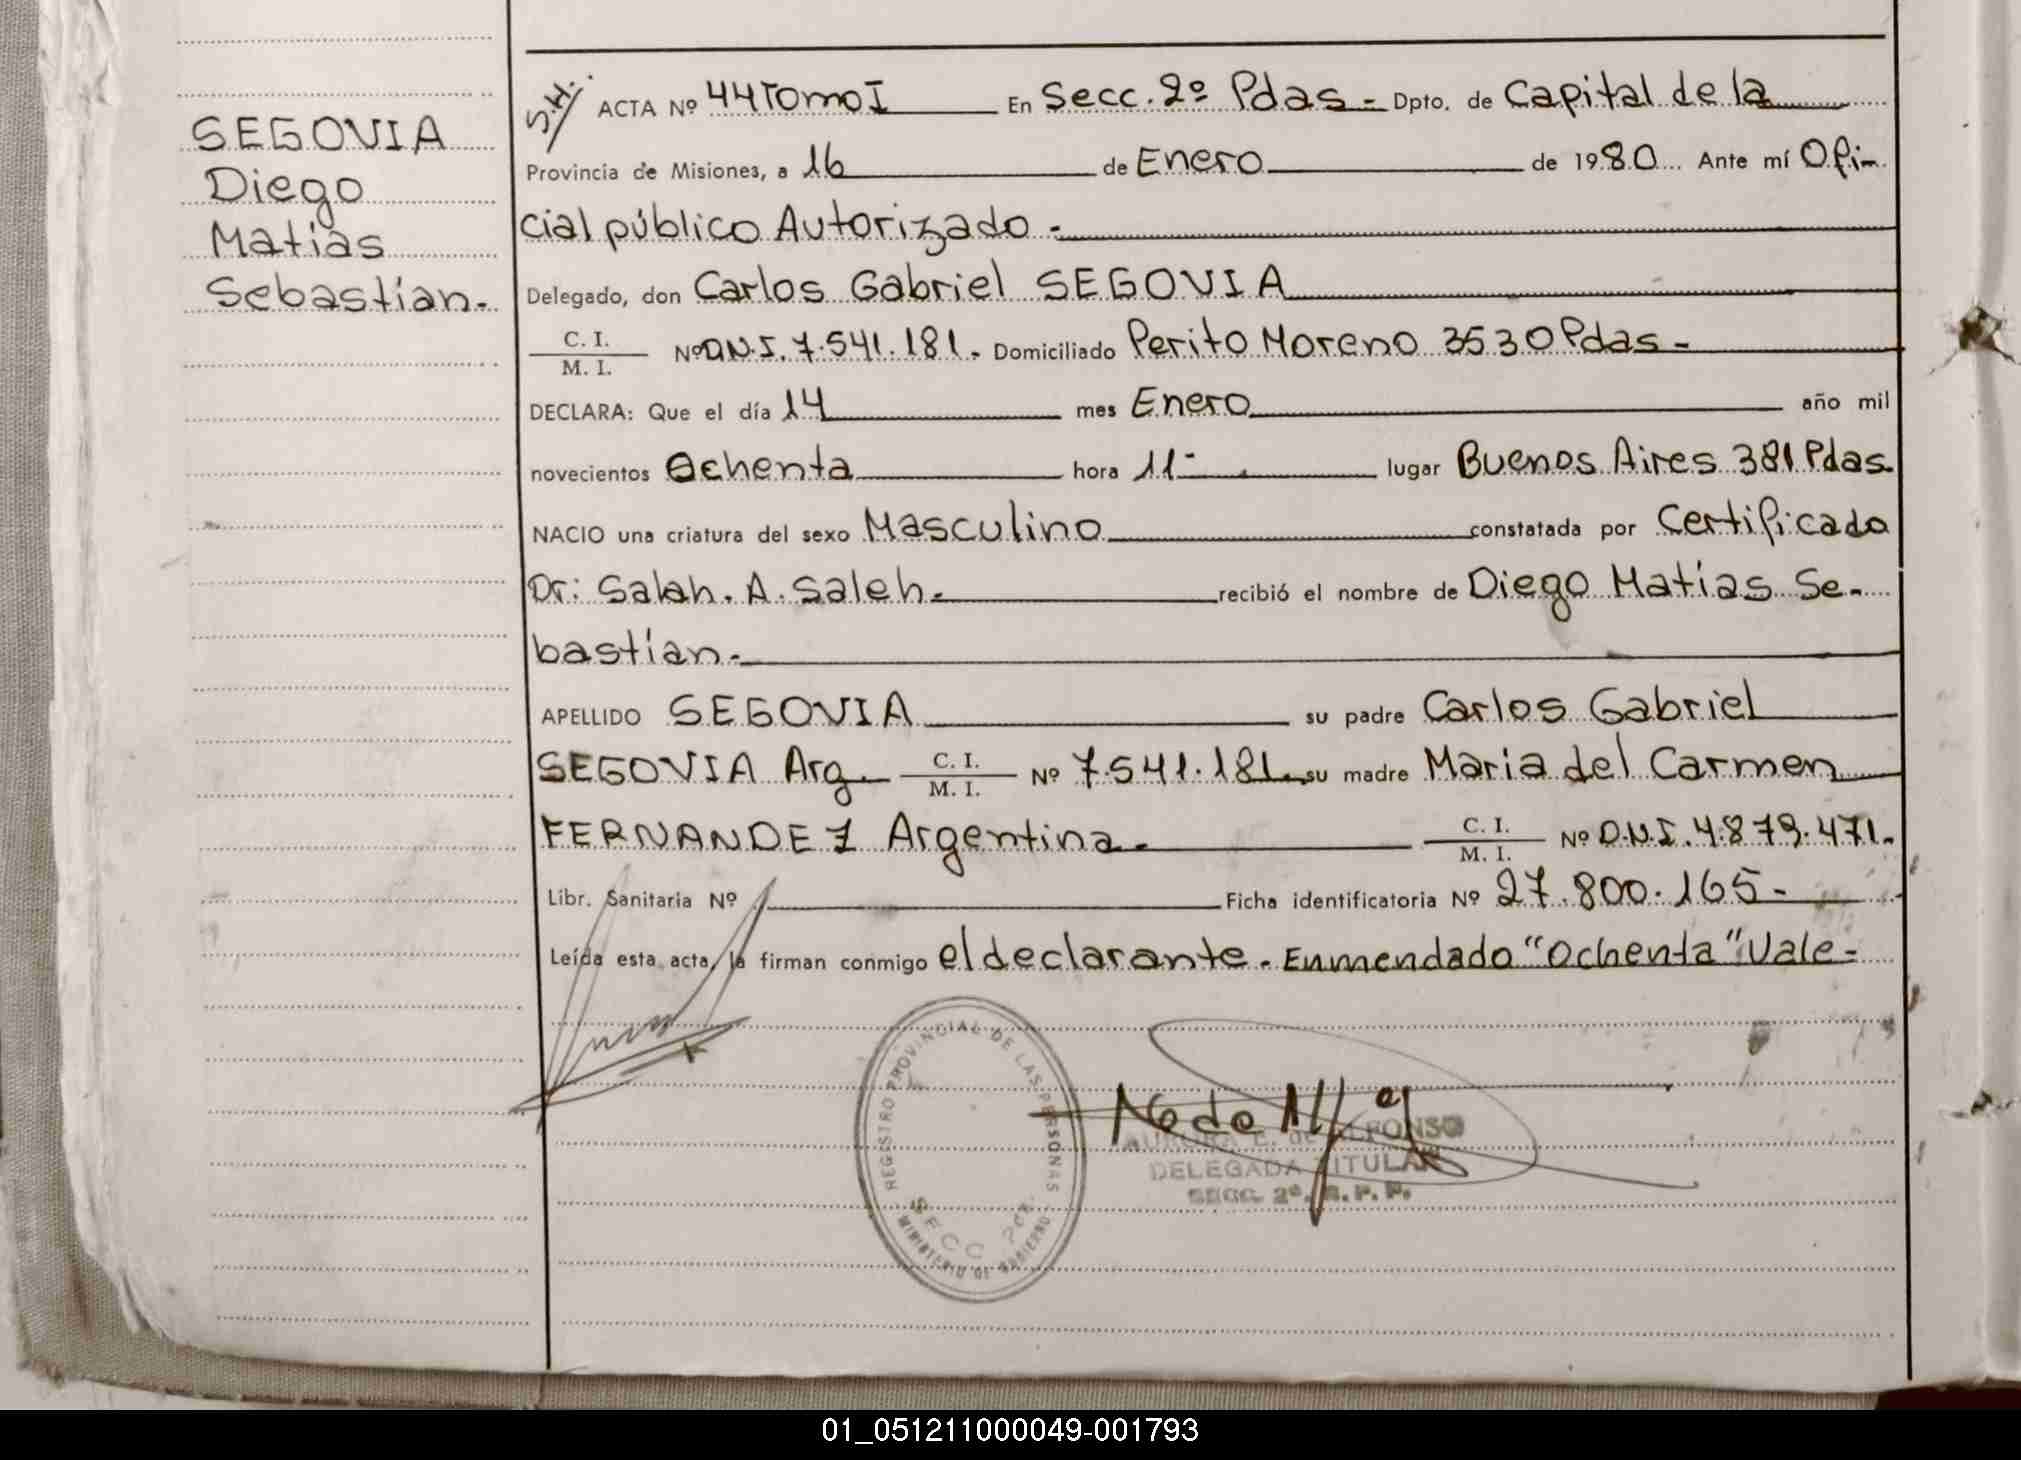 SEGOVIA
Diego
Matías
Sebastían.
S.H. ACTA Nº 44 Tomo I En Secc. 2º Pdas - Dpto. de Capital de la
Provincia de Misiones, a 16 de Enero de 1980 Ante mí Ofi-
cial público Autorizado -
Delegado, don Carlos Gabriel SEGOVIA
C. I.
M. I. Nº D.N.I. 7.541.181. Domiciliado Perito Moreno 3530 Pdas -
DECLARA: Que el día 14 mes Enero año mil
novecientos Ochenta hora 11- lugar Buenos Aires 381 Pdas.
NACIO una criatura del sexo Masculino constatada por Certificado
Dr: Salah. A. Saleh. recibió el nombre de Diego Matías Se-
bastían.
APELLIDO SEGOVIA su padre Carlos Gabriel
SEGOVIA Arg. C. I. M. I. Nº 7.541.181. su madre Maria del Carmen
FERNANDEZ Argentina. C. I. M. I. Nº D.N.I. 4.879.471.
Libr. Sanitaria Nº Ficha identificatoria Nº 27.800.165 -
Leída esta acta, la firman conmigo el declarante. Enmendado "Ochenta" Vale -
REGISTRO PROVINCIAL DE LAS PERSONAS
SECC 2da.
MINISTERIO DE GOBIERNO
AURORA E. de ALFONSO
DELEGADA TITULAR
SECC. 2ª. R. P. P.
01_051211000049-001793